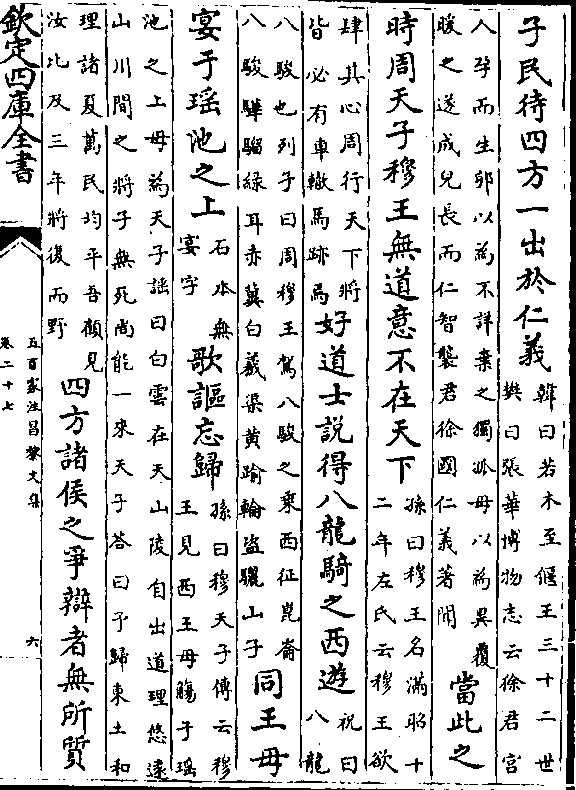 子民待四方一出於仁義韓曰若木至偃王三十二世樊曰張華博物志云徐君宮
人孕而生卵以為不詳棄之獨孤母以為異覆暖之遂成兒長而仁智襲君徐國仁義著聞當此之
時周天子穆王無道意不在天下孫曰穆王名滿昭十二年左氏云穆王欲
肆其心周行天下將皆必有車轍馬跡焉好道士説得八龍騎之西遊祝曰八龍
八駿也列子曰周穆王駕八駿之乘西征崑崙八駿驊騮緑耳赤冀白義渠黄踰輪盜驪山子同王母
宴于瑶池之上石本無宴字歌謳忘歸孫曰穆天子傳云穆王見西王母觴于瑶
池之上母為天子謡曰白雲在天山陵自出道理悠逺山川間之將子無死尚能一來天子荅曰予歸東土和
理諸夏萬民均平吾顧見汝比及三年將復而野四方諸侯之爭辯者無所質
欽定四庫全書
五百家注昌黎文集
卷二十七
六